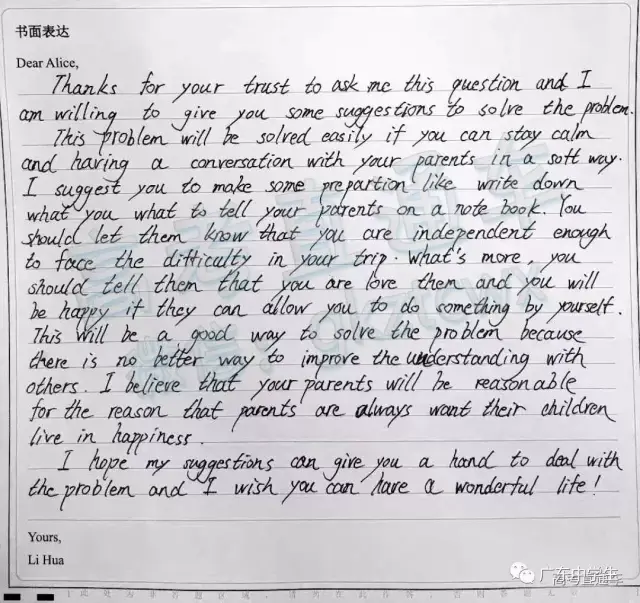 书面表达
Dear Alice,
Thanks for your trust to ask me this question and I
am willing to give you some suggestions to solve the problem.
This problem will be solved easily if you can stay calm
and having a conversation with your parents in a soft way.
I suggest you to make some prepartion like write down
what you what to tell your parents on a note book. You
should let them know that you are independent enough
to face the difficulty in your trip. What's more, you
should tell them that you are love them and you will
be happy if they can allow you to do something by yourself.
This will be a good way to solve the problem because
there is no better way to improve the understanding with
others. I believe that your parents will be reasonable
for the reason that parents are always want their children
live in happiness.
I hope my suggestions can give you a hand to deal with
the problem and I wish you can have a wonderful life!
Yours,
Li Hua
广东中学生